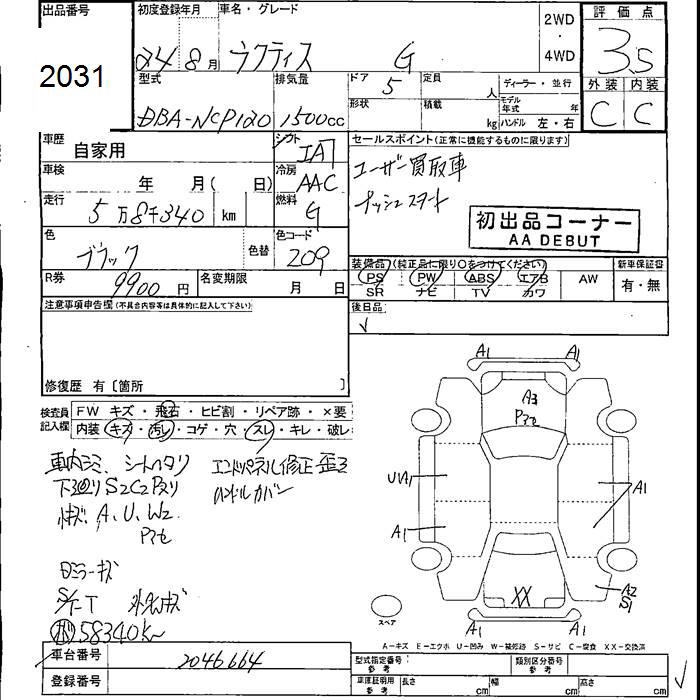 出品番号
2031
初度登録年月
24 8月
車名・グレード
ラクティス G
2WD
・
4WD
評価点
3.5
外装 内装
C C
型式
DBA-NCP120
排気量
1500cc
ドア
5
定員
人
ディーラー・並行
形状
積載
kg
モデル年式 年
ハンドル 左・右
車歴
自家用
シフト
IA
車検
年 月( 日)
冷房
AAC
走行
5万8千340 km
燃料
G
色
ブラック
色替
色コード
209
R券
9900円
名変期限
月 日
セールスポイント(正常に機能するものに限ります)
ユーザー買取車
プッシュスタート
初出品コーナー
AA DEBUT
装備品 (純正品に限り○をつけてください)
PS PW ABS エアB AW
SR ナビ TV カワ
新車保証書
有・無
後日品
注意事項申告欄(不具合内容等は具体的に記入して下さい)
修復歴 有〔箇所 〕
検査員記入欄
FW キズ・飛石・ヒビ割・リペア跡・×要
内装 キズ・汚レ・コゲ・穴・スレ・キレ・破レ
車内ゴミ、シートヘタリ
エンドパネル修正歪ミ
下廻りS2C2Pスリ
ハンドルカバー
小キズ、A、U、W2
Pアセ
ロミラーキズ
58340K
車台番号
2046664
登録番号
A1 A1
A3
Pアセ
UA1
A1
A1
XX
A2
S1
A1 A1
スペア
A-キズ E-エクボ U-凹み W-補修跡 S-サビ C-腐食 XX-交換済
型式指定番号
参考
類別区分番号
参考
車庫証明用
参考
長さ cm
幅 cm
高さ cm